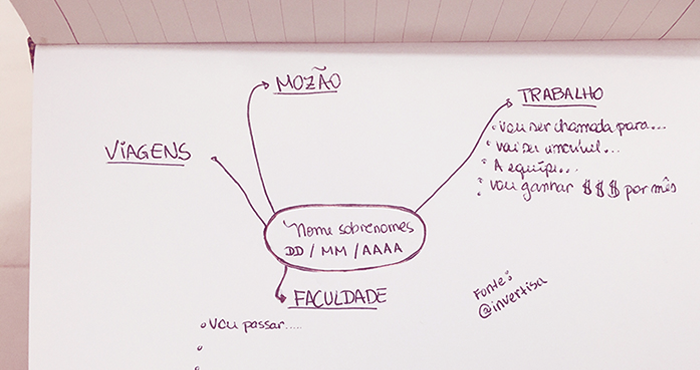 MOZÃO
TRABALHO
• Vou ser chamada para...
• Vai ser uncrível...
• A equipe...
• Vou ganhar $ $ $ por mês
VIAGENS
Nome sobrenomes
DD / MM / AAAA
FACULDADE
• Vou passar.....
Fonte:
@invertisa